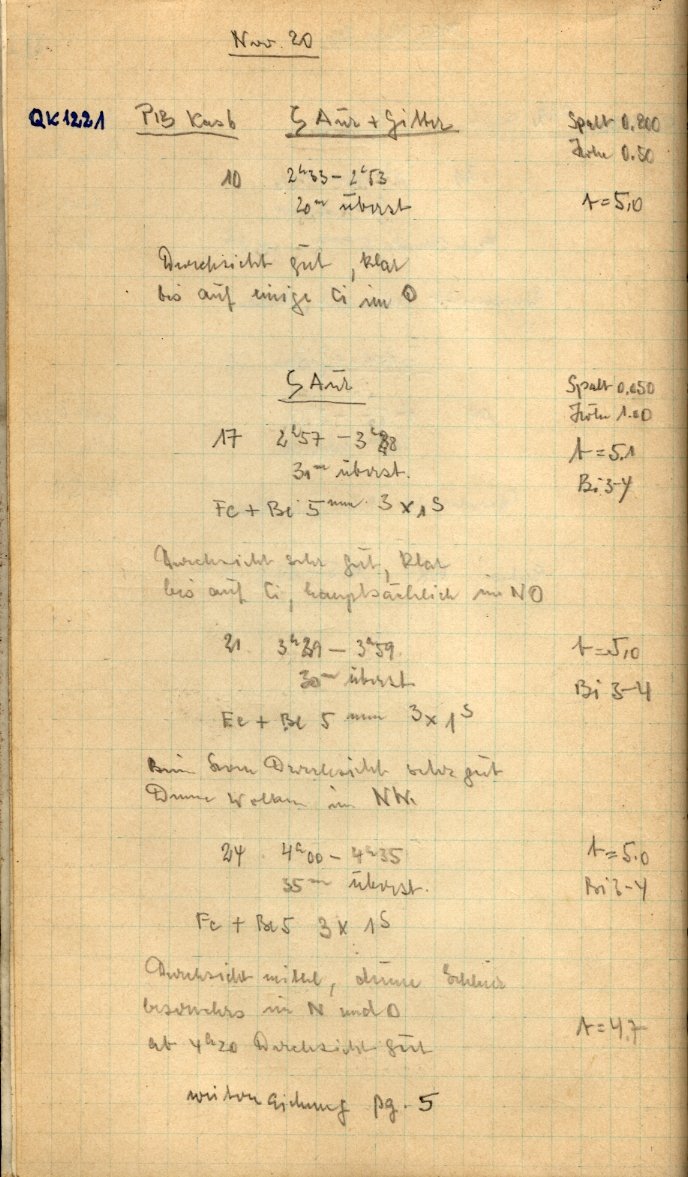 Nov. 20
QK1221 P13 Kasb ζ Aur + Gitter Spalt 0.200
Höhe 0.50
10 2h33 – 2h53
20m überst t=5,0
Durchsicht gut, klar
bis auf einige Ci im O
ζ Aur Spalt 0.050
Höhe 1.00
17 2h57 – 3h28 t=5.1
31m überst. Bi 3-4
Fe + Be 5 mm 3 x 1s
Durchsicht sehr gut, klar
bis auf Ci, hauptsächlich im NO
21 3h29 – 3h59 t=5,0
30m überst Bi 3-4
Fe + Be 5 mm 3 x 1s
Beim Durchsicht sehr gut
Dünne Wolken im NW.
24 4h00 – 4h35 t=5.0
35m überst. Bi 3-4
Fe + Be 5 3 x 1s
Durchsicht mittel, dünne Schleier
besonders im N und O
ab 4h20 Durchsicht gut t=4,7
pg. 5